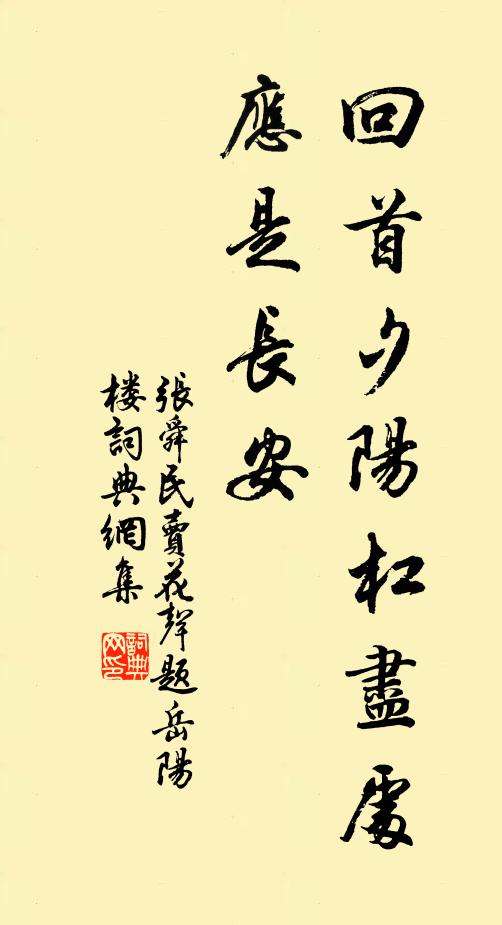 回首夕陽杠盡處
應是長安
張舜民賣花聲題岳陽
楼詞典網集
詞典
网印